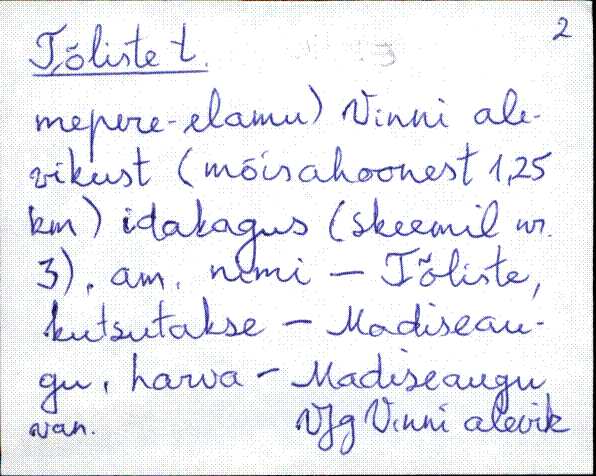 2
Tõliste t.
mepere-elamu) Vinni ale-
vikust (mõisahoonest 1,25
km) idakagus (skeemil nr.
3). am. nimi – Tõliste,
kutsutakse – Madiseau-
gu, harva – Madiseaugu
van. VJg Vinni alevik